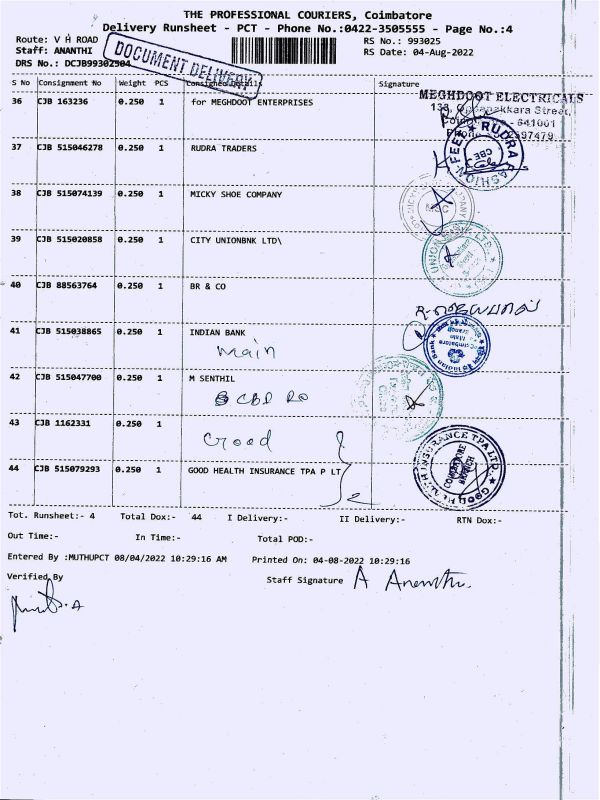 THE PROFESSIONAL COURIERS, Coimbatore
Delivery Runsheet - PCT - Phone No.:0422-3505555 - Page No.:4
Route: V H ROAD RS No.: 993025
Staff: ANANTHI RS Date: 04-Aug-2022
DRS No.: DCJB99302504
DOCUMENT DELIVERY
S No Consignment No Weight PCS Consignee Details Signature
36 CJB 163236 0.250 1 for MEGHDOOT ENTERPRISES
MEGHDOOT ELECTRICALS
641001
37 CJB 515046278 0.250 1 RUDRA TRADERS
RUDRA FASHION FEET
CBE
38 CJB 515074139 0.250 1 MICKY SHOE COMPANY
MSC
39 CJB 515020858 0.250 1 CITY UNIONBNK LTD\
40 CJB 88563764 0.250 1 BR & CO
41 CJB 515038865 0.250 1 INDIAN BANK
Main
Indian Bank
42 CJB 515047700 0.250 1 M SENTHIL
CBD RO
43 CJB 1162331 0.250 1
Good
44 CJB 515079293 0.250 1 GOOD HEALTH INSURANCE TPA P LT
GOOD HEALTH INSURANCE TPA LTD.
COIMBATORE BRANCH
Tot. Runsheet:- 4 Total Dox:- 44 I Delivery:- II Delivery:- RTN Dox:-
Out Time:- In Time:- Total POD:-
Entered By :MUTHUPCT 08/04/2022 10:29:16 AM Printed On: 04-08-2022 10:29:16
Verified By Staff Signature A Ananthi.